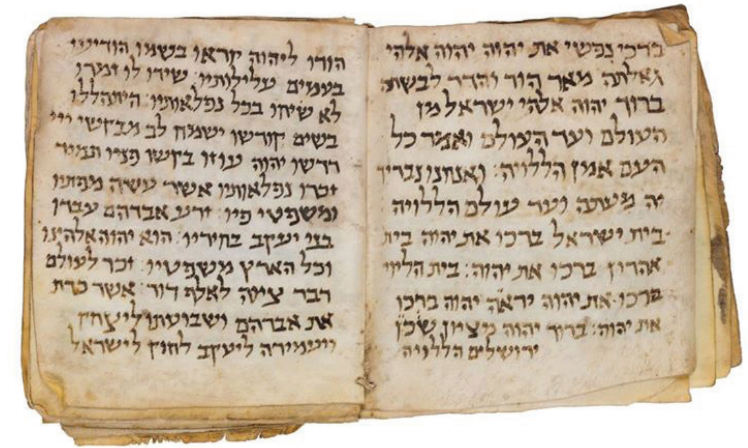 ברכי נפשי את יהוה יהוה אלהי
גדלתה מאד הוד והדר לבשתה
ברוך יהוה אלהי ישראל מן
העולם ועד העולם ואמר כל
העם אמן הללויה: ואנחנו נבריך
יה מעתה ועד עולם הללויה
בית ישראל ברכו את יהוה בית
אהרון ברכו את יהוה: בית הליוי
ברכו את יהוה יראי יהוה ברכו
את יהוה: ברוך יהוה מציון שכן
ירושלים הללויה
הודו ליהוה קראו בשמו הודיעו
בעמים עלילותיו: שירו לו זמרו
לא שיחו בכל נפלאותיו: היתהללו
בשם קודשו ישמח לב מבקשי ייי
דרשו יהוה עוזו בקשו פניו תמיד
זכרו נפלאותיו אשר עשה מפתיו
ומשפטי פיו: זרע אברהם עבדו
בני יעקב בחיריו: הוא יהוה אלהינו
וכל הארץ משפטיו: זכר לעולם
דבר ציוה לאלף דור: אשר כרת
את אברהם ושבועתו ליצחק
ויעמידה ליעקב לחוק לישראל